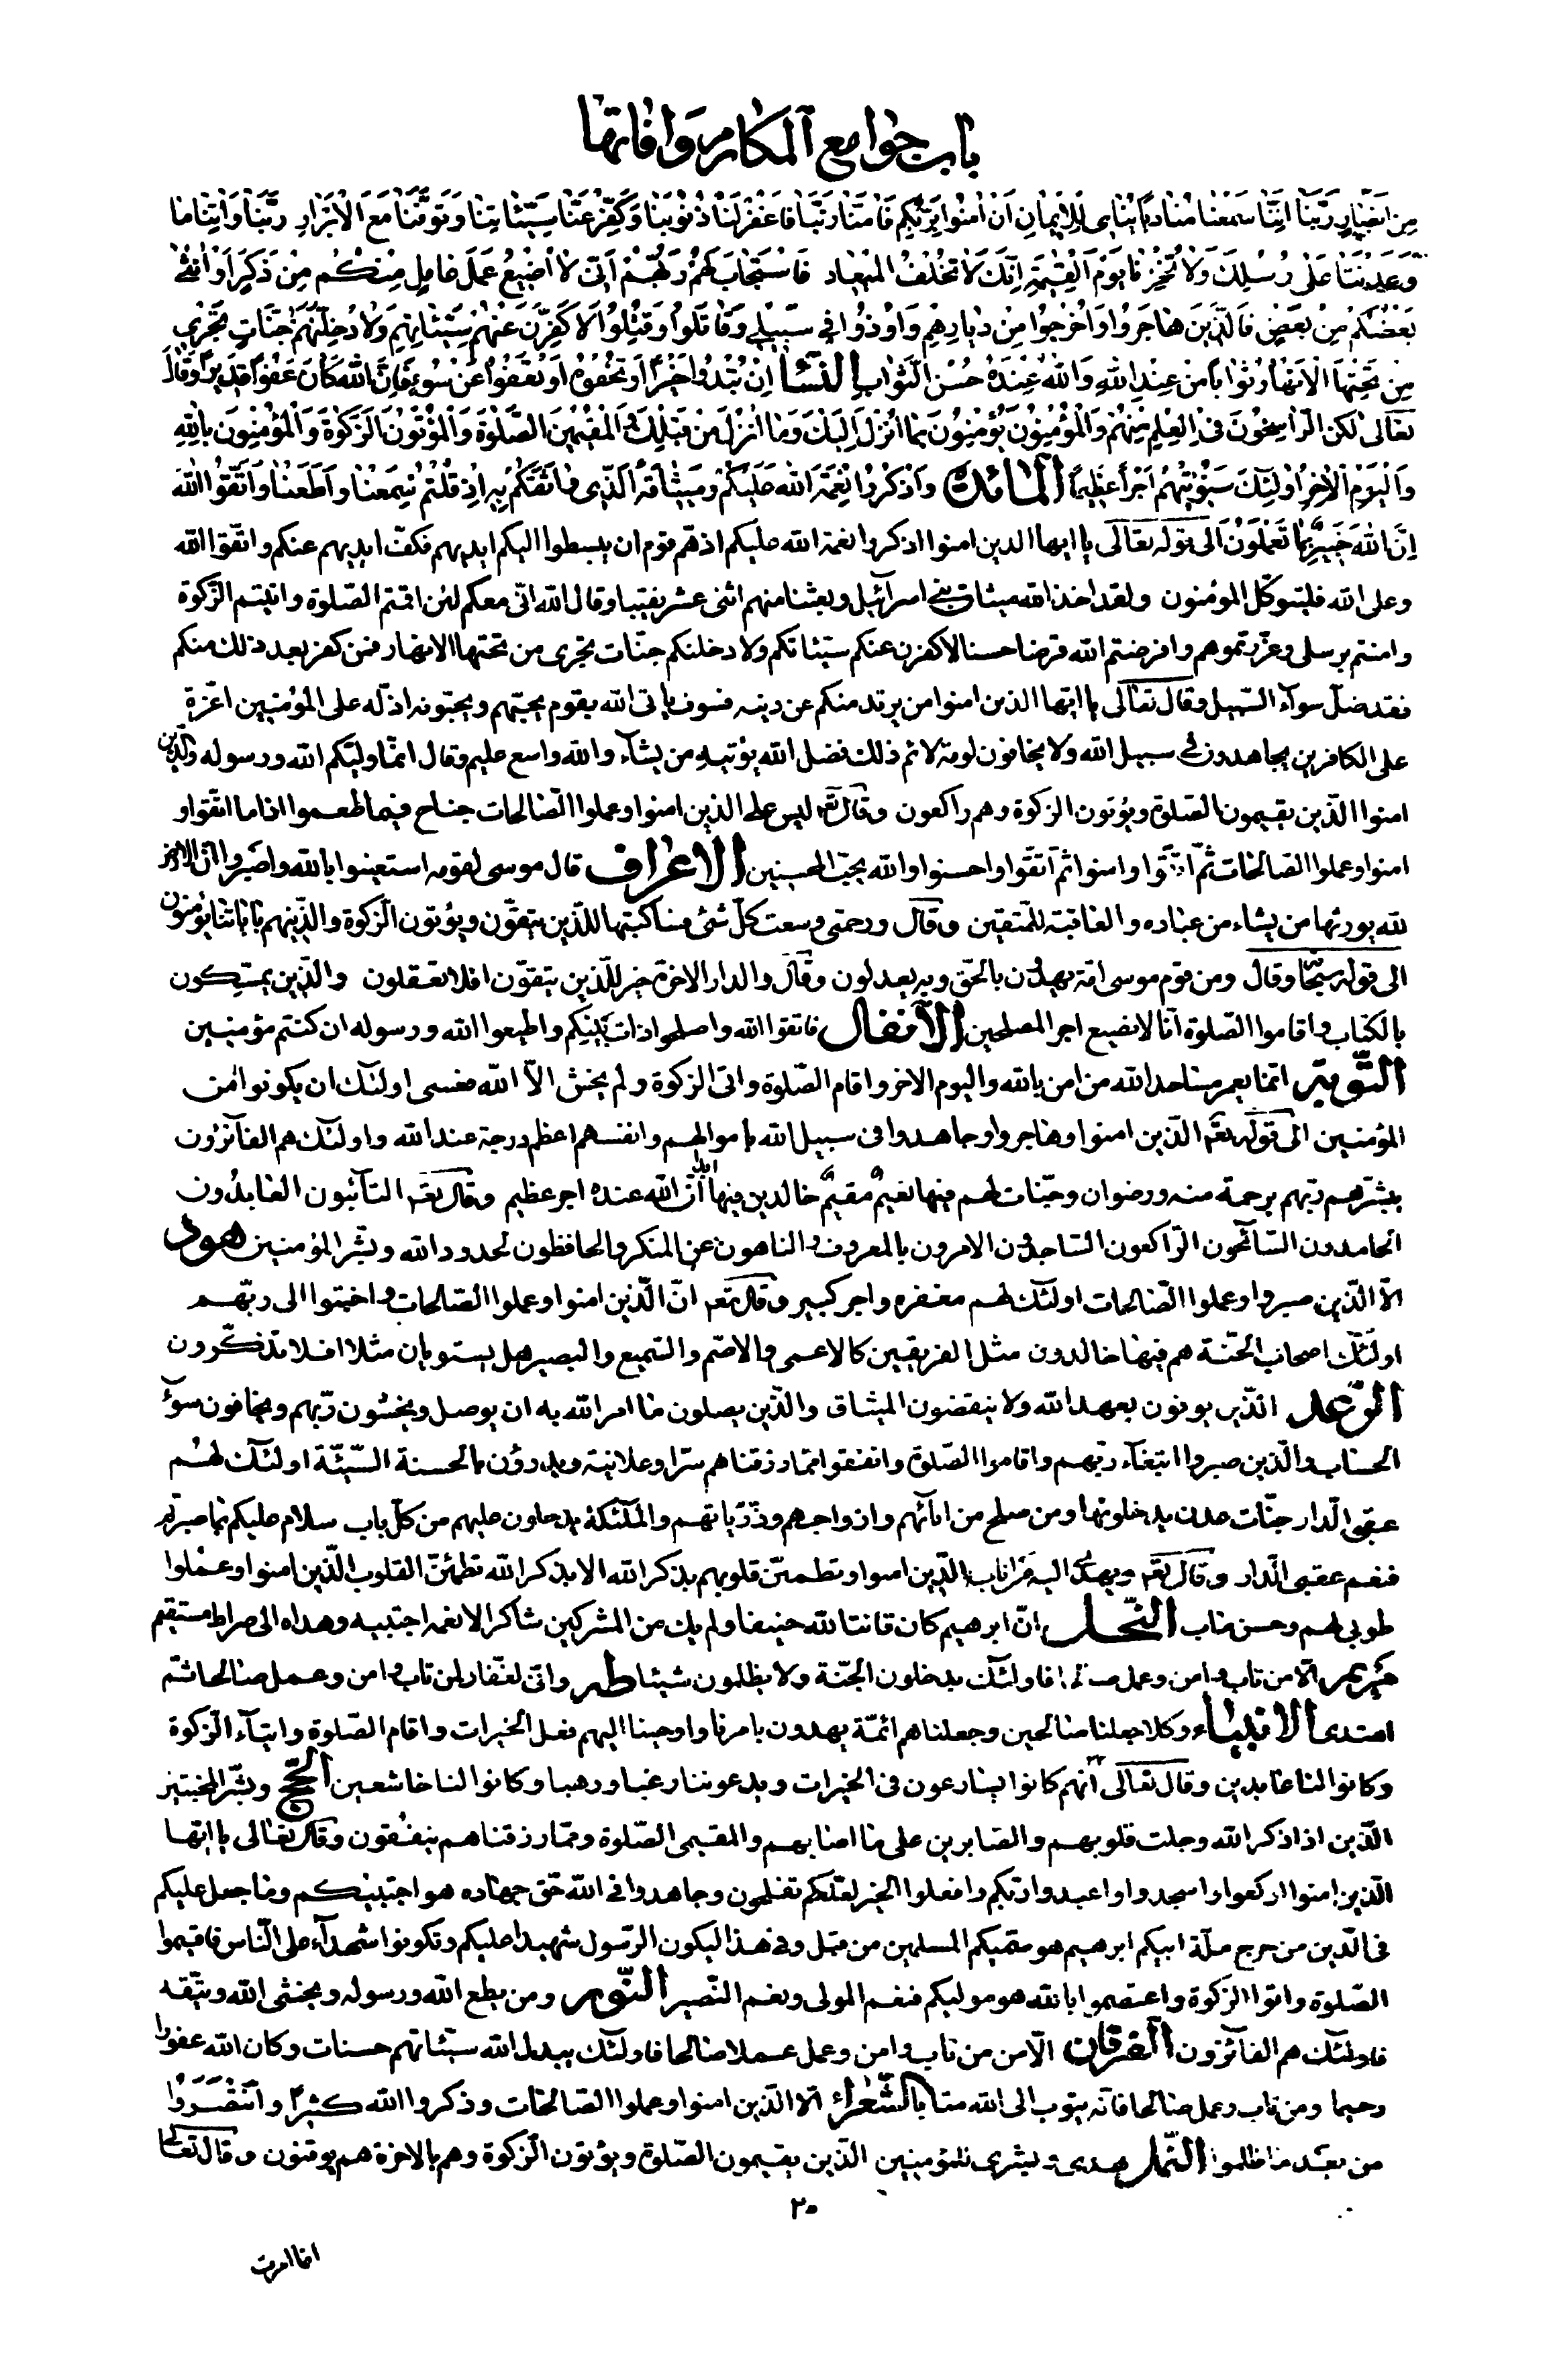 باب جوامع المكارم وافاتها
مِن اَنصارٍ رَبَّنا اِنَّنا سَمِعْنا مُنادِيًا يُنادِى لِلاِيمانِ اَن اٰمِنُوا بِرَبِّكُم فَاٰمَنّا رَبَّنا فَاغْفِرْلَنا ذُنُوبَنا وَكَفِّرْ عَنّا سَيِّئاتِنا وَتَوَفَّنا مَعَ الْاَبْرارِ رَبَّنا وَاٰتِنا ما
وَعَدْتَنا عَلى رُسُلِكَ وَلا تُخْزِنا يَوْمَ الْقِيٰمَةِ اِنَّكَ لا تُخْلِفُ الْميعاد فَاسْتَجابَ لَهُمْ رَبُّهُمْ اَنّى لا اُضيعُ عَمَلَ عامِلٍ مِنْكُم مِنْ ذَكَرٍ اَوْ اُنثى
بَعْضُكُمْ مِنْ بَعضٍ فَالَّذينَ هاجَرُوا وَاُخْرِجُوا مِنْ دِيارِهِم وَاُوذُوا فى سَبيلى وَقاتَلُوا وَقُتِلُوا لَاُكَفِّرَنَّ عَنْهُمْ سَيِّئاتِهِم وَلَاُدْخِلَنَّهُمْ جَنّاتٍ تَجْرى
مِن تَحْتِهَا الْاَنْهارُ ثَوابًا مِن عِنْدِ اللهِ وَاللهُ عِنْدَهُ حُسْنُ الثَّوابِ النسآء اِنْ تُبْدُوا خَيْرًا اَوْ تُخْفُوهُ اَوْ تَعْفُوا عَنْ سُوءٍ فَاِنَّ اللهَ كانَ عَفُوًّا قَديرًا وَقالَ
تَعالى لكِنِ الرّاسِخُونَ فى الْعِلْمِ مِنْهُمْ وَالْمُؤْمِنُونَ يُؤْمِنُونَ بِما اُنْزِلَ اِلَيْكَ وَما اُنْزِلَ مِنْ قَبْلِكَ وَالْمُقيمينَ الصَّلٰوةَ وَالْمُؤْتُونَ الزَّكٰوةَ وَالْمُؤْمِنُونَ بِاللهِ
وَالْيَوْمِ الْاٰخِرِ اُولٰئِكَ سَنُؤْتيهِمْ اَجْرًا عَظيمًا المائدة وَاذْكُرُوا نِعْمَةَ اللهِ عَلَيْكُمْ وَميثاقَهُ الَّذى واثَقَكُمْ بِهِ اِذْ قُلْتُمْ سَمِعْنا وَاَطَعْنا وَاتَّقُوا اللهَ
اِنَّ اللهَ خَبيرٌ بِما تَعْمَلُونَ الى قوله تعالى يا ايها الذين امنوا اذكروا نعمة الله عليكم اذ همّ قوم ان يبسطوا اليكم ايديهم فكفّ ايديهم عنكم واتقوا الله
وعلى الله فليتوكّل المؤمنون ولقد اخذ الله ميثاق بنى اسرآئيل وبعثنا منهم اثنى عشر نقيبا وقال الله انّى معكم لئن اقمتم الصّلوة واتيتم الزّكوة
وامنتم برسلى وعزّرتموهم واقرضتم الله قرضا حسنا لاكفرن عنكم سيّئاتكم ولادخلنكم جنّات تجرى من تحتها الانهار فمن كفر بعد ذلك منكم
فقد ضلّ سوآء السّبيل وقال تعالى يا ايّها الذين امنوا من يرتد منكم عن دينه فسوف ياتى الله بقوم يحبّهم ويحبّونه اذلّه على المؤمنين اعزّة
على الكافرين يجاهدون فى سبيل الله ولا يخافون لومة لائم ذلك فضل الله يؤتيه من يشآء والله واسع عليم وقال انّما وليّكم الله ورسوله والّذين
امنوا الّذين يقيمون الصّلوة ويؤتون الزكوة وهم راكعون وقال تعه ليس على الذين امنوا وعملوا الصّالحات جناح فيما طعموا اذا ما اتّقوا و
امنوا وعملوا الصّالحات ثمّ اتّقوا وامنوا ثمّ اتّقوا واحسنوا والله يحبّ المحسنين الاعراف قال موسى لقومه استعينوا بالله واصبروا انّ الارض
لله يورثها من يشاء من عباده والعاقبة للمتّقين وقال ورحمتى وسعت كلّ شئ فساكتبها للّذين يتّقون ويؤتون الزّكوة والّذينهم باياتنا يؤمنون
الى قوله سبحا وقال ومن قوم موسى امّة يهدون بالحّق وبه يعدلون وقال والدار الاخرة خير للّذين يتقون افلا تعقلون والّذين يمسّكون
بالكتاب واقاموا الصّلوة انا لا نضيع اجر المصلحين الانفال فاتقوا الله واصلحوا ذات بَيْنِكم واطيعوا الله ورسوله ان كنتم مؤمنين
التّوبة انّما يعمر مساجد الله من امن بالله واليوم الاخر واقام الصّلوة واتى الزكوة ولم يخش الاّ الله فعسى اولئك ان يكونوا من
المؤمنين الى قوله تعه الّذين امنوا وهاجروا وجاهدوا فى سبيل الله باموالهم وانفسهم اعظم درجة عند الله واولئك هم الفآئزون
يبشّرهم ربّهم برحمة منه ورضوان وجنّات لهم فيها نعيمٌ مقيمٌ خالدين فيها ابدا انّ الله عنده اجر عظيم وقال تعه التآئبون العابدون
الحامدون السّآئحون الرّاكعون السّاجدون الامرون بالمعروف والناهون عن المنكر والحافظون لحدود الله وبشّر المؤمنين هود
الاّ الّذين صبروا وعملوا الصّالحات اولئك لهم مغفره واجر كبير وقال تعه انّ الّذين امنوا وعملوا الصّالحات واخبتوا الى ربّهم
اولئك اصحاب الجنّة هم فيها خالدون مثل الفريقين كالاعمى والاصّم والسّميع والبصير هل يستويان مثلا افلا تذكّرون
الرّعد الّذين يوفون بعهد الله ولا ينقضون الميثاق والّذين يصلون ما امر الله به ان يوصل ويخشون ربّهم ويخافون سوٓء
الحساب والّذين صبروا ابتغآء ربّهم واقاموا الصّلوة وانفقوا ممّا رزقناهم سّرا وعلانية ويدرؤن بالحسنة السّيّئة اولئك لهم
عقبى الّدار جنّات عدن يدخلونها ومن صلح من ابآئهم وازواجهم وذرّيّاتهم والملٓئكة يدخلون عليهم من كلّ باب سلام عليكم بما صبرتم
فنعم عقبى الّدار وقال تعه ويهدى اليه من اناب الّذين امنوا وتطمئنّ قلوبهم بذكر الله الا بذكر الله تطمئنّ القلوب الّذين امنوا وعملوا
طوبى لهم وحسن ماب النّحل انّ ابرهيم كان قانتا لله حنيفا ولم يك من المشركين شاكرا لانعمه اجتبيه وهداه الى صراط مستقيم
مريم الّا من تاب وامن وعمل صالحا فاولئك يدخلون الجنّة ولا يظلمون شيئا طه وانّى لغفّار لمن تاب وامن وعمل صالحا ثمّ
اهتدى الانبياء وكلا جعلنا صالحين وجعلناهم ائمّة يهدون بامرنا واوحينا اليهم فعل الخيرات واقام الصّلوة وايتآء الزّكوة
وكانوا لنا عابدين وقال تعالى انهم كانوا يسارعون فى الخيرات ويدعوننا رغبا ورهبا وكانوا لنا خاشعين الحجّ وبشّر المخبتين
الّذين اذا ذكر الله وجلت قلوبهم والصّابرين على ما اصابهم والمقيمى الصّلوة وممّا رزقناهم ينفقون وقال تعالى يا ايّها
الّذين امنوا اركعوا واسجدوا واعبدوا ربّكم وافعلوا الخير لعلّكم تفلحون وجاهدوا فى الله حّق جهاده هو اجتبيكم وما جعل عليكم
فى الّدين من حرج ملّة ابيكم ابرهيم هو سمّيكم المسلمين من قبل وفى هذا ليكون الرّسول شهيدا عليكم وتكونوا شهدآء على النّاس فاقيموا
الصّلوة واتوا الزّكوة واعتصموا بالله هو موليكم فنعم المولى ونعم النّصير النّور ومن يطع الله ورسوله ويخشى الله ويتّقه
فاولئك هم الفآئزون الفرقان الّا من تاب وامن وعمل عملا صالحا فاولئك يبدل الله سيّئاتهم حسنات وكان الله عفورا
رحيما ومن تاب وعمل صالحا فانّه يتوب الى الله متابا الشّعراء الّا الّذين امنوا وعملوا الصّالحات وذكروا الله كثيرًا وانتصروا
من بعد ما ظلموا النّمل هدى وبشرى للمؤمنين الّذين يقيمون الصّلوة ويؤتون الزّكوة وهم بالاخرة هم يوقنون وقال تعالى
انما امرت